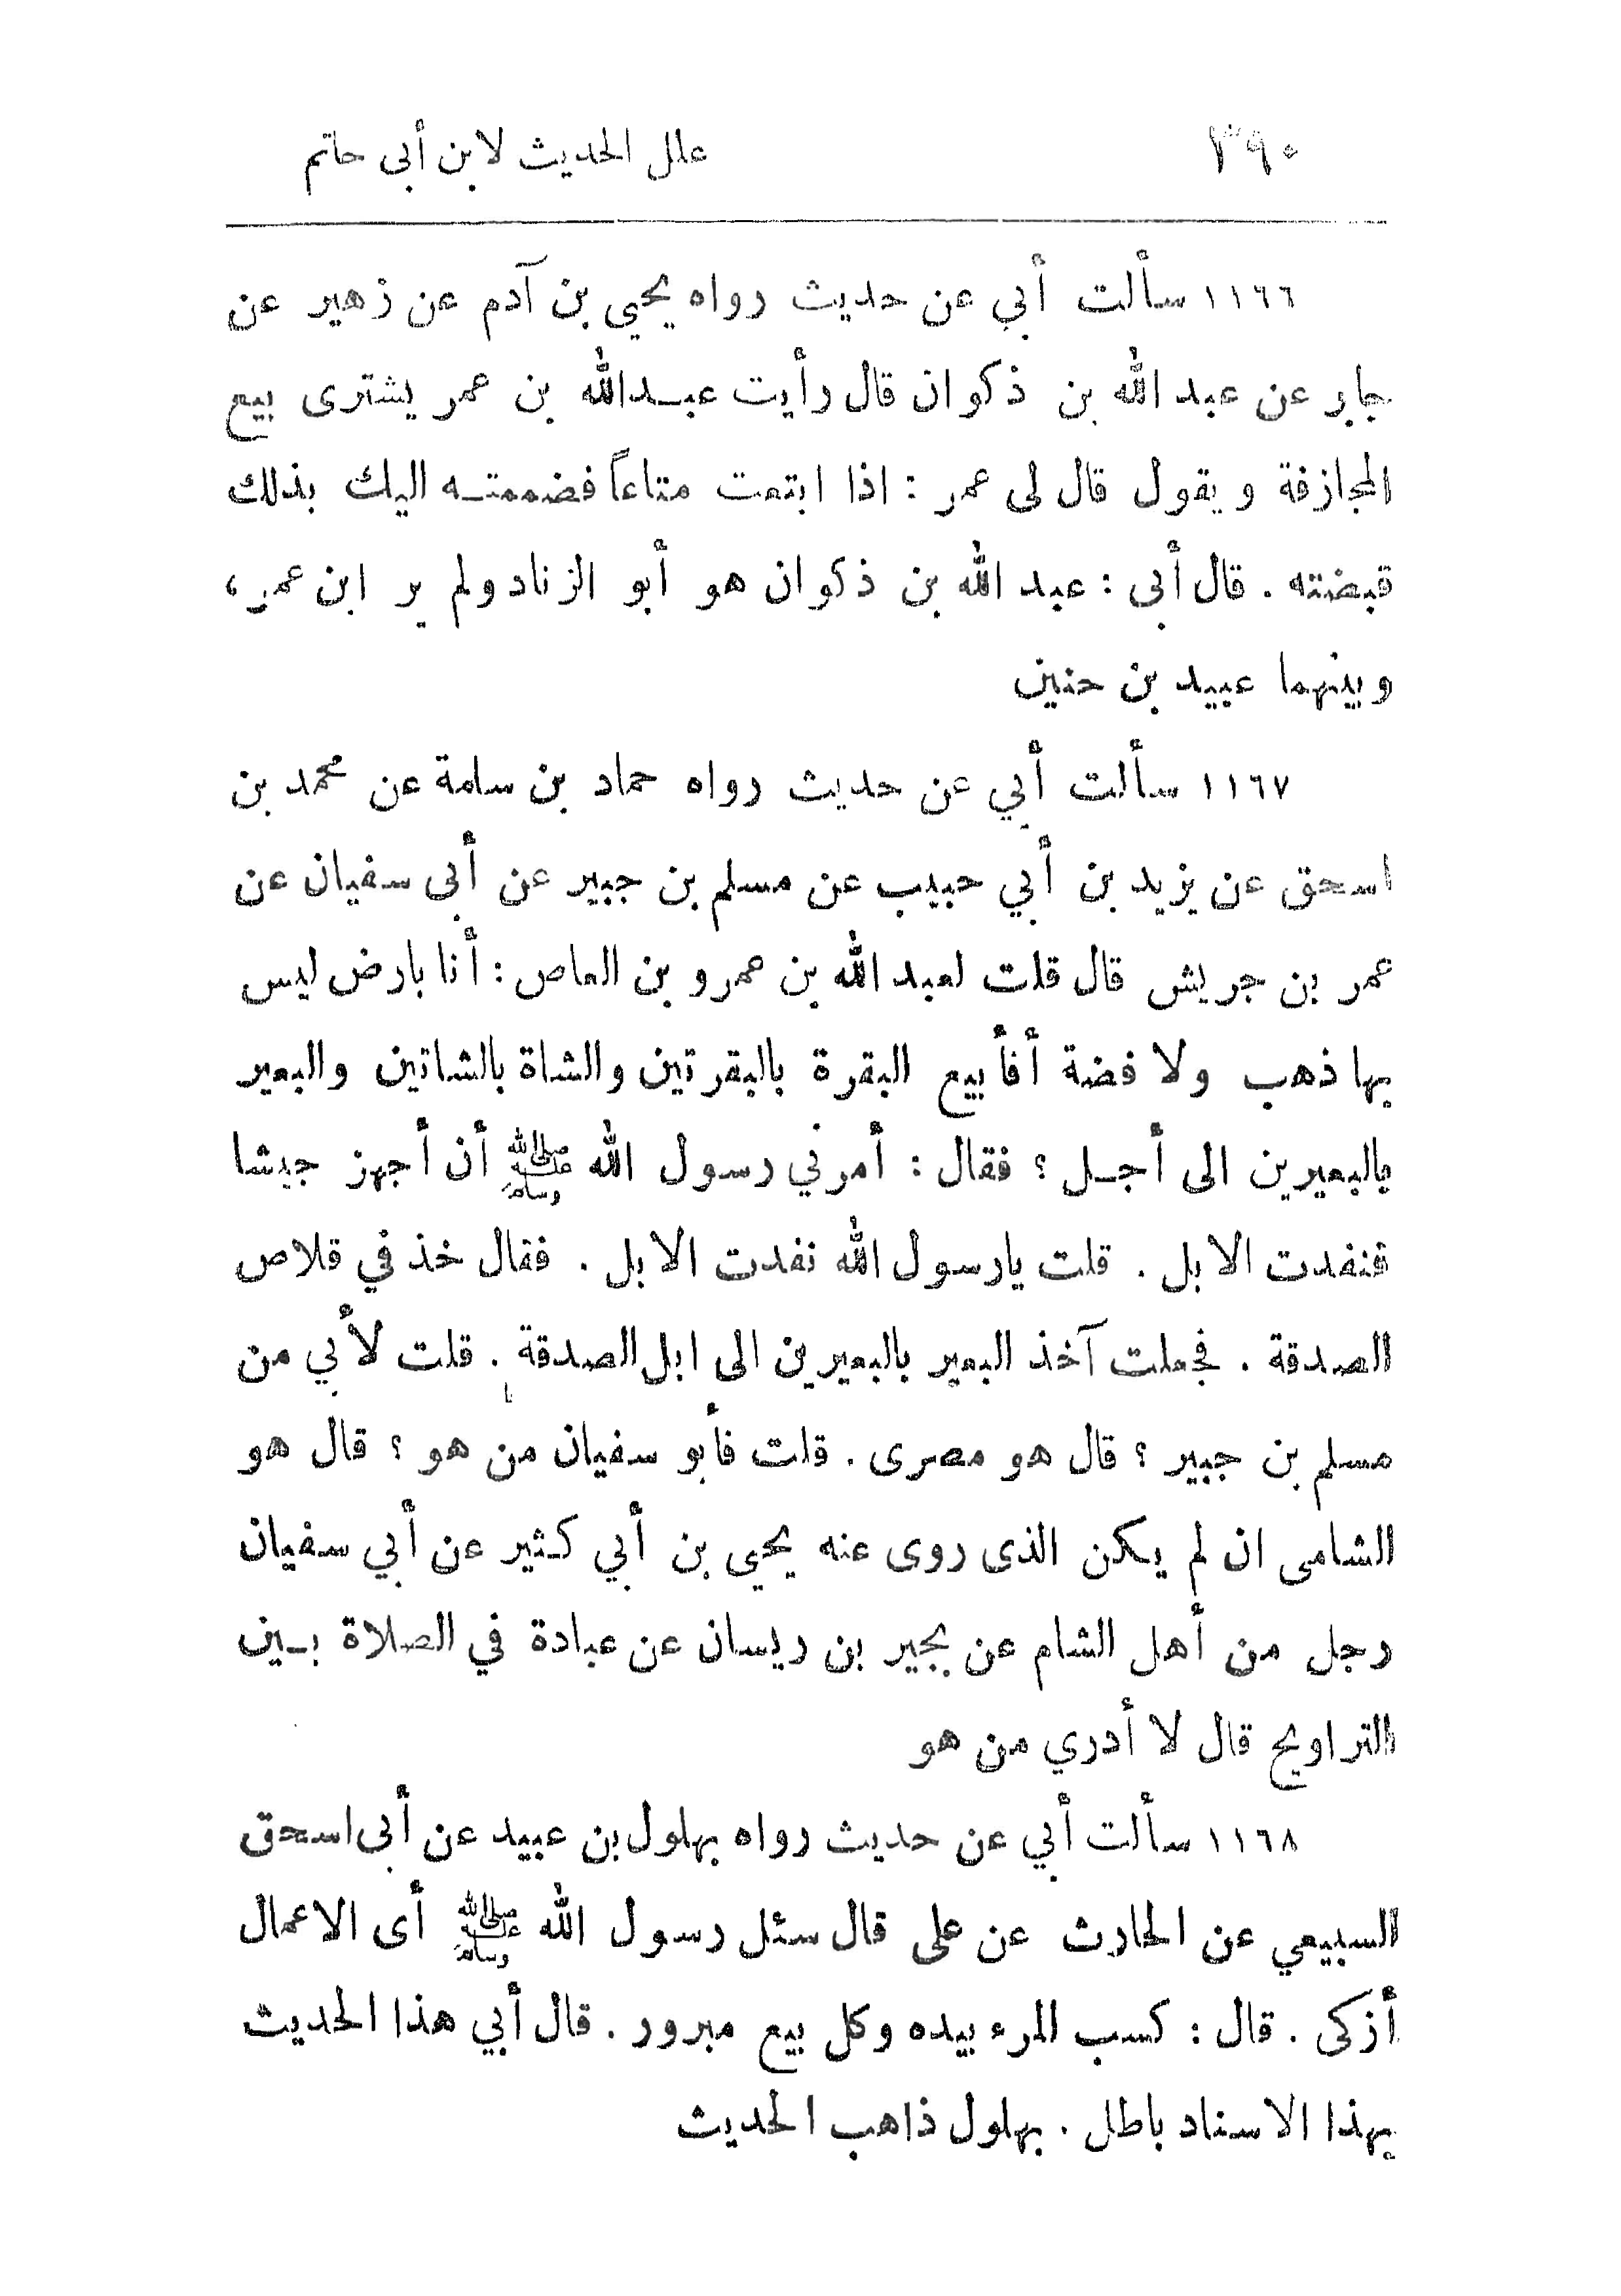 ٣٩٠ علل الحديث لابن أبى حاتم
١١٦٦ سألت أبي عن حديث رواه يحيى بن آدم عن زهير عن
جابر عن عبد الله بن ذكوان قال رأيت عبدالله بن عمر يشترى بيع
المجازفة ويقول قال لى عمر : اذا ابتعت متاعاً فضممته اليك بذلك
قبضته . قال أبى : عبد الله بن ذكوان هو أبو الزناد ولم ير ابن عمر ،
وبينهما عبيد بن حنين
١١٦٧ سألت أبي عن حديث رواه حماد بن سلمة عن محمد بن
اسحق عن يزيد بن أبي حبيب عن مسلم بن جبير عن أبى سفيان عن
عمر بن جريش قال قلت لعبد الله بن عمرو بن العاص : أنا بارض ليس
بها ذهب ولا فضة أفأبيع البقرة بالبقرتين والشاة بالشاتين والبعير
بالبعيرين الى أجل ؟ فقال : أمرني رسول الله ﷺ أن أجهز جيشا
فنفدت الابل . قلت يارسول الله نفدت الابل . فقال خذ في قلاص
الصدقة . فجعلت آخذ البعير بالبعيرين الى ابل الصدقة . قلت لأبي من
مسلم بن جبير ؟ قال هو مصرى . قلت فأبو سفيان من هو ؟ قال هو
الشامى ان لم يكن الذى روى عنه يحيى بن أبي كثير عن أبي سفيان
رجل من أهل الشام عن بجير بن ريسان عن عبادة في الصلاة بين
التراويح قال لا أدري من هو
١١٦٨ سألت أبي عن حديث رواه بهلول بن عبيد عن أبى اسحق
السبيعي عن الحارث عن على قال سئل رسول الله ﷺ أى الاعمال
أزكى . قال : كسب المرء بيده وكل بيع مبرور . قال أبي هذا الحديث
بهذا الاسناد باطل . بهلول ذاهب الحديث